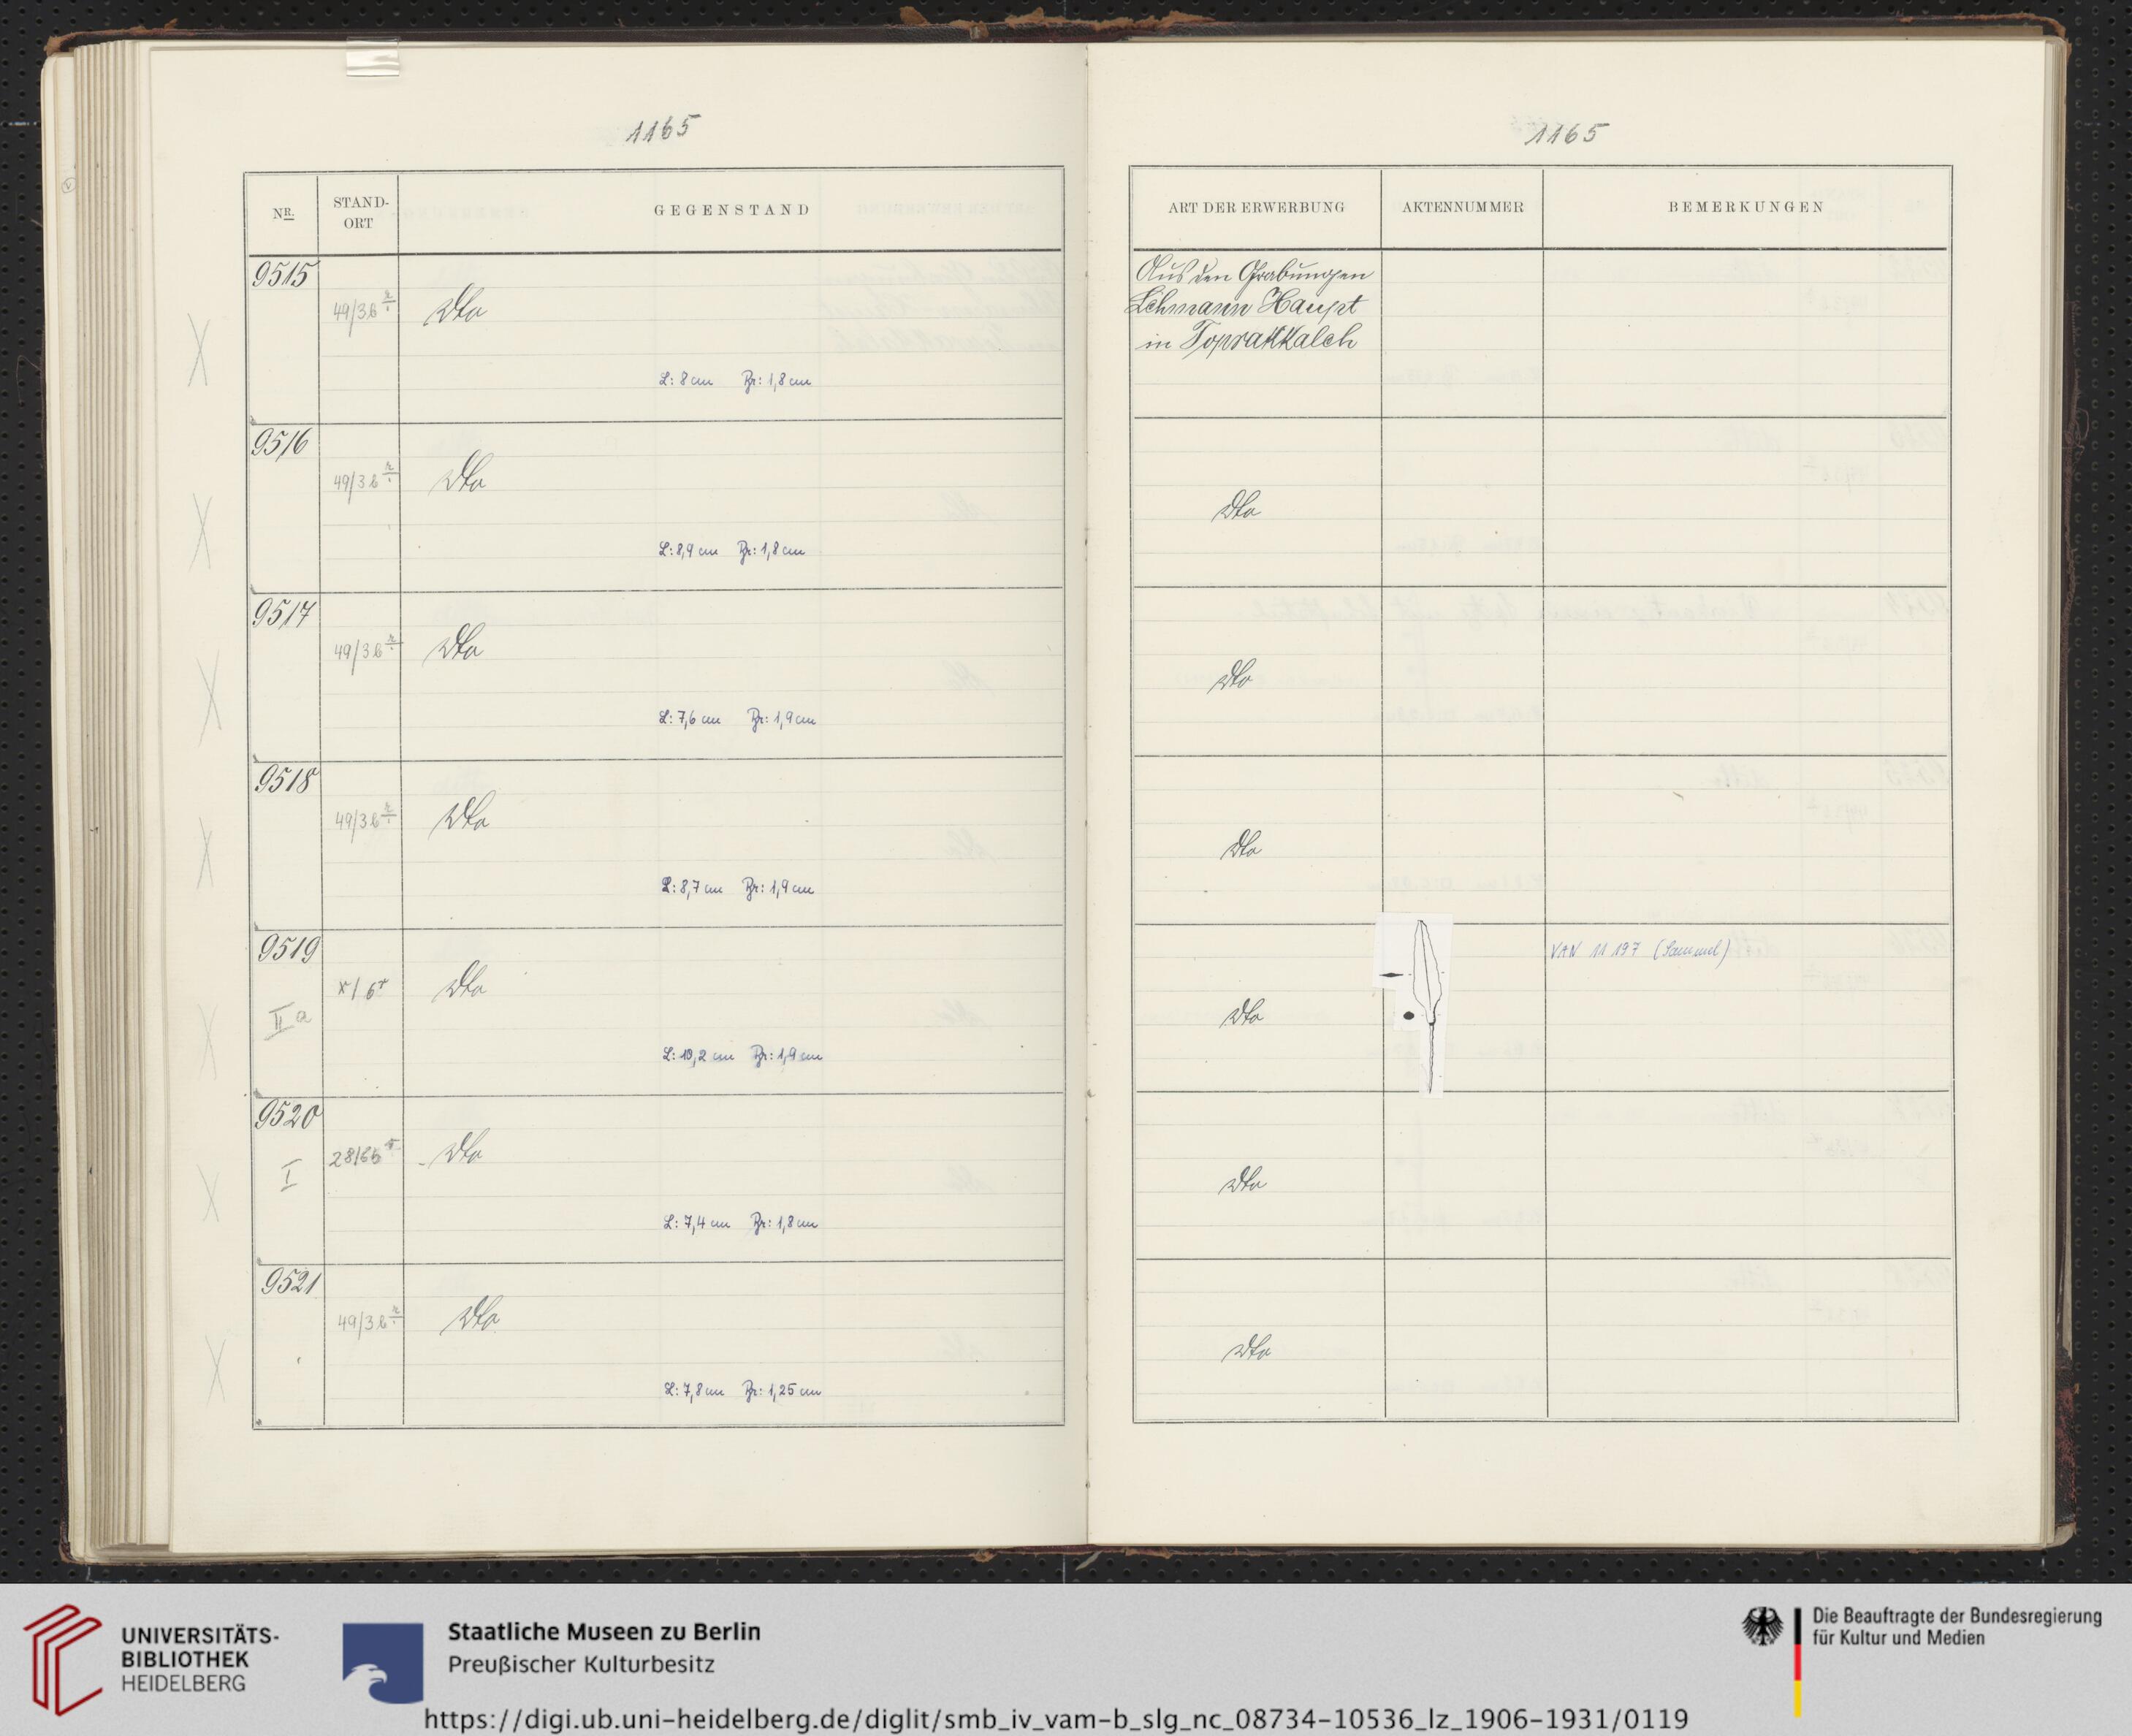 1165
NR.
STAND-
ORT
GEGENSTAND
9515
49/3b
Dto
L: 8 cm Br: 1,8 cm
9516
49/3b
Dto
L: 8,9 cm Br: 1,8 cm
9517
49/3b
Dto
L: 7,6 cm Br: 1,9 cm
9518
49/3b
Dto
L: 8,7 cm Br: 1,9 cm
9519
II a
Dto
L: 10,2 cm Br: 1,9 cm
9520
I
Dto
L: 7,4 cm Br: 1,8 cm
9521
49/3b
Dto
L: 7,8 cm Br: 1,25 cm
1165
ART DER ERWERBUNG
AKTENNUMMER
BEMERKUNGEN
Aus den Grabungen
Lehmann Haupt
in Toprakkaleh
Dto
Dto
Dto
Dto
VAN 11 197 (Sammel)
Dto
Dto
UNIVERSITÄTS-
BIBLIOTHEK
HEIDELBERG
Staatliche Museen zu Berlin
Preußischer Kulturbesitz
Die Beauftragte der Bundesregierung
für Kultur und Medien
https://digi.ub.uni-heidelberg.de/diglit/smb_iv_vam-b_slg_nc_08734-10536_lz_1906-1931/0119